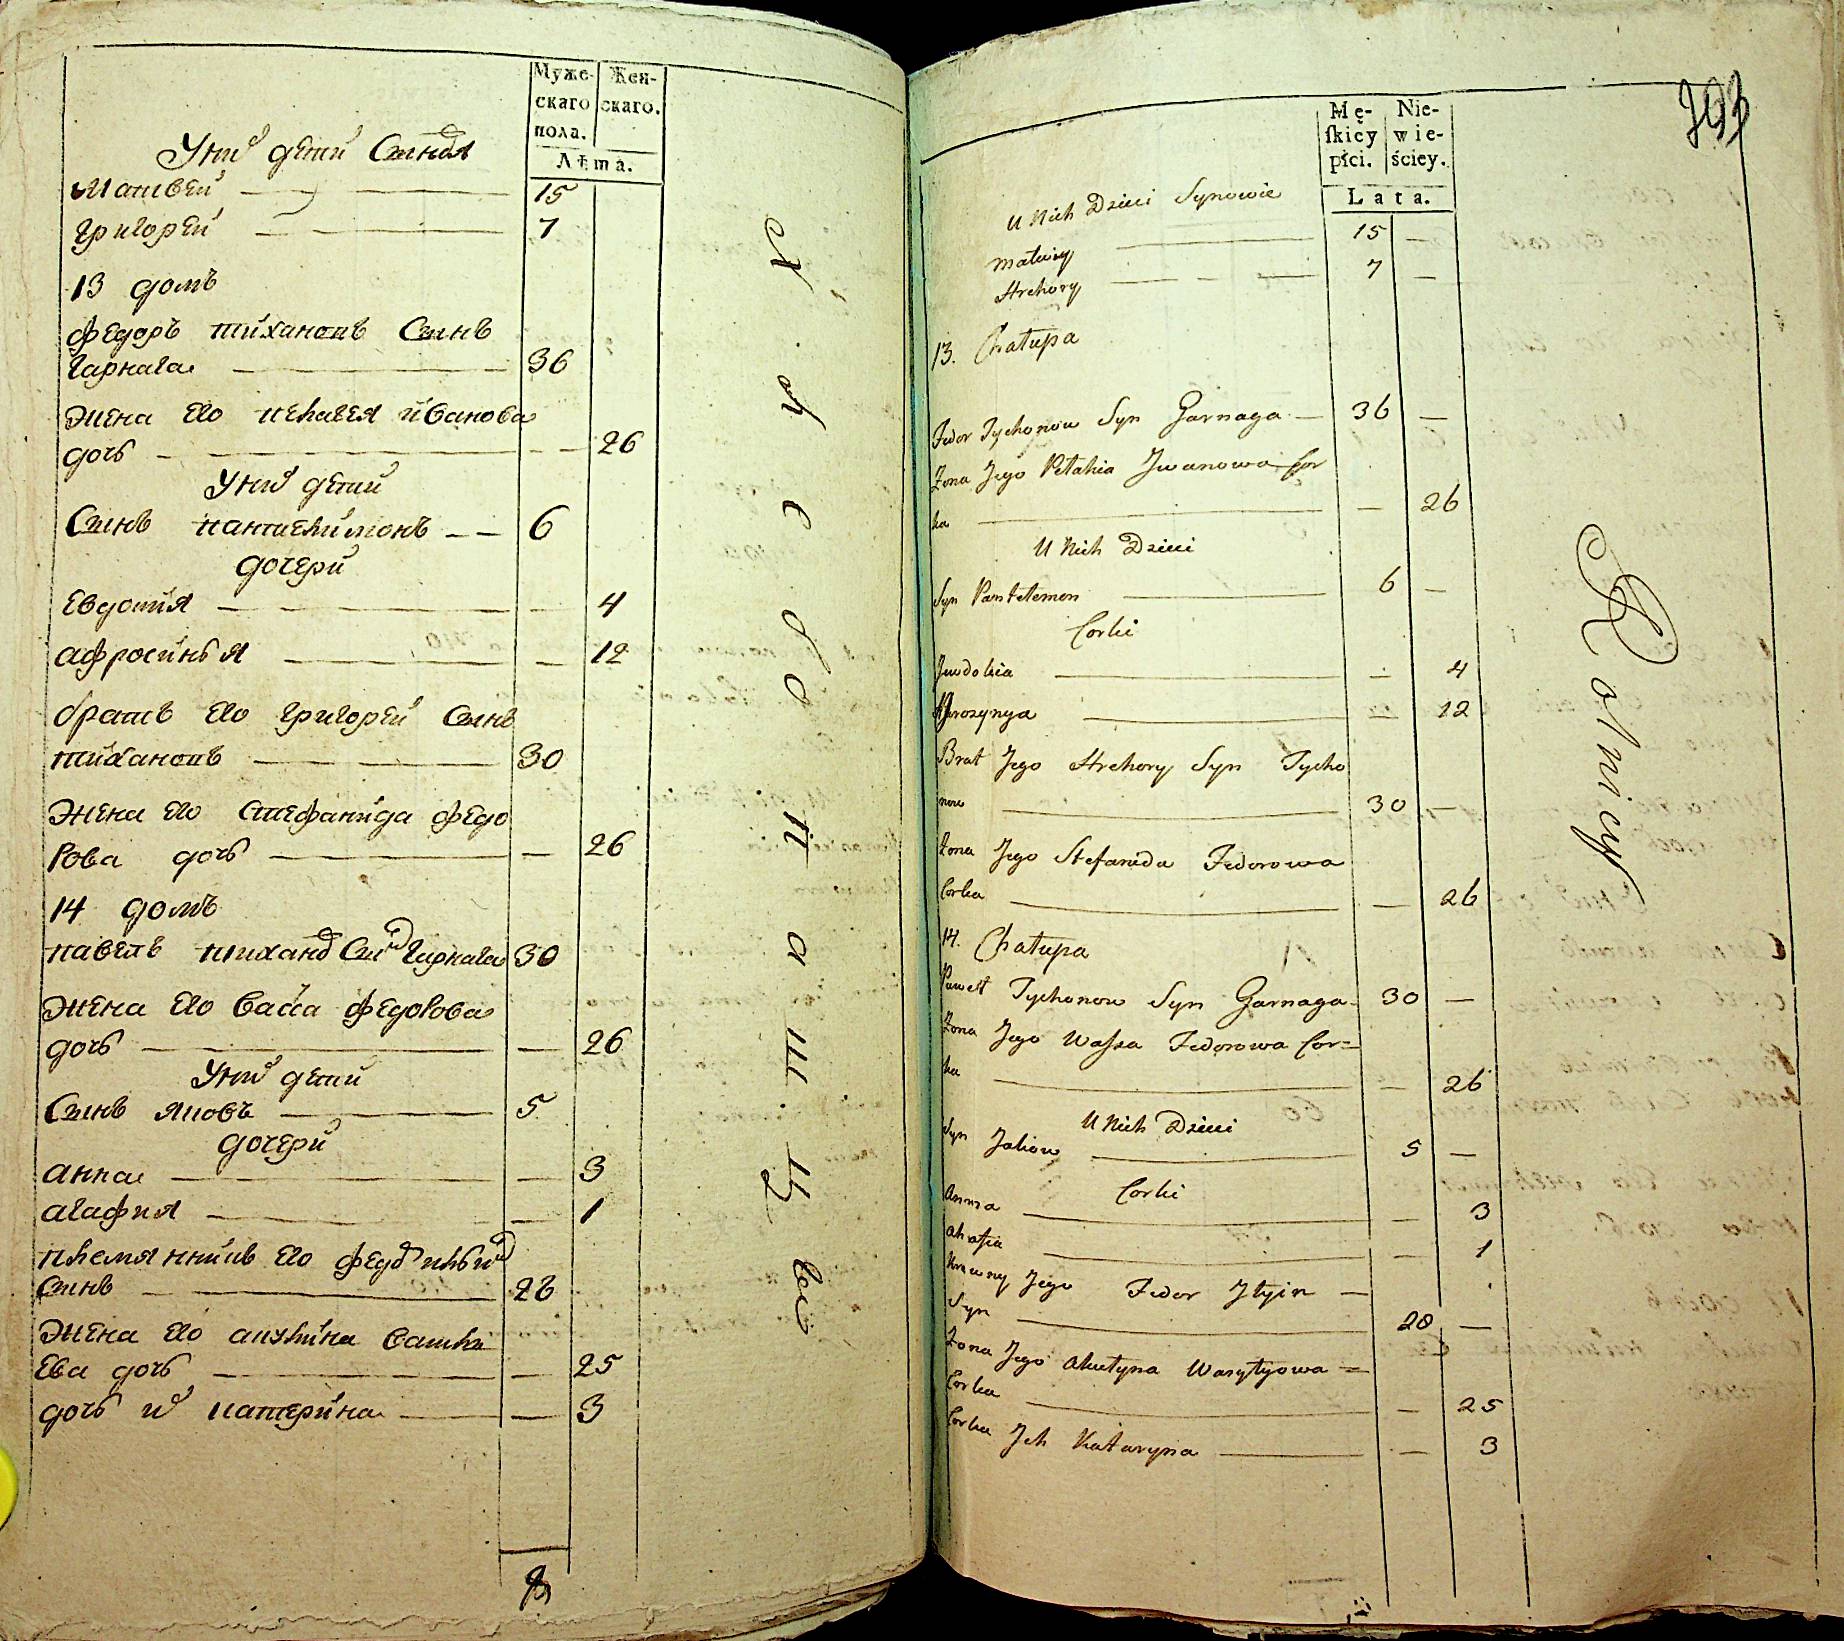 Муже-
скаго
пола.
Жен-
скаго.
Лѣта.
У них дети Синовя
Матвей 15
григорей 7
13 домъ
федоръ тихановъ Синъ
Гарнага 36
жена его пелагея иванова
дочь 26
У них дети
Синъ пантелимонъ 6
дочери
Евдокия 4
афросинья 12
братъ его григорей Синъ
тихановъ 30
жена его стефанида федо
рова дочь 26
14 домъ
павелъ тиханов Син Гарнага 30
жена его васса федорова
дочь 26
У них дети
Синъ яковъ 5
дочери
анна 3
агафия 1
племянникъ его федор ильин
Синъ 28
жена его акулина василь
ева дочь 25
дочь их катерина 3
хлебопашцы
Mę-
ſkiey
płci.
Nie-
wie-
ściey.
Lata.
U Nich Dzieci Synowie
Matwiy 15 —
Hrehory 7 —
13. Chałupa
Fedor Tychonow Syn Garnaga — 36 —
Żona Jego Pelahia Jwanowa Cor
ka — 26
U Nich Dzieci
Syn Pantelemon 6 —
Corki
Jewdokia 4
Afrozynya 12
Brat Jego Hrehory Syn Tycho
now 30 —
Żona Jego Stefanida Fedorowa
Corka — 26
14. Chałupa
Paweł Tychonow Syn Garnaga 30 —
Żona Jego Wassa Fedorowa Cor=
ka — 26
U Nich Dzieci
Syn Jakow 5 —
Corki
Anna — 3
Ahafia — 1
Krewny Jego Fedor Jlyin —
Syn 28 —
Żona Jego Akulyna Wasylyowa =
Corka — 25
Corka Jch Kataryna — 3
Rolnicy